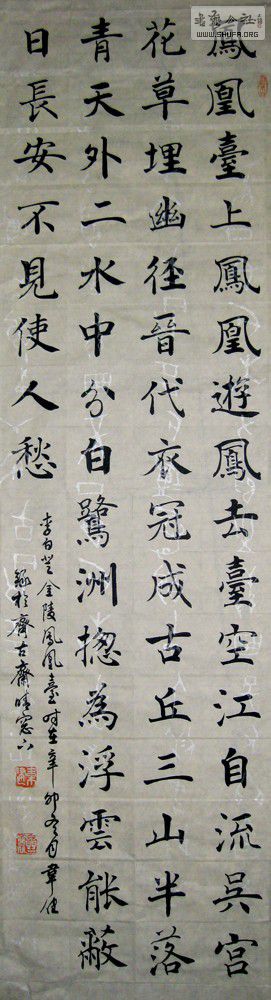 鳳凰臺上鳳凰遊鳳去臺空江自流吳宮
花草埋幽徑晉代衣冠成古丘三山半落
青天外二水中分白鷺洲揔為浮雲能蔽
日長安不見使人愁
李白登金陵鳳凰臺时在辛卯冬月韋
於齊古齋晴窗下
WWW.SHUFA.ORG